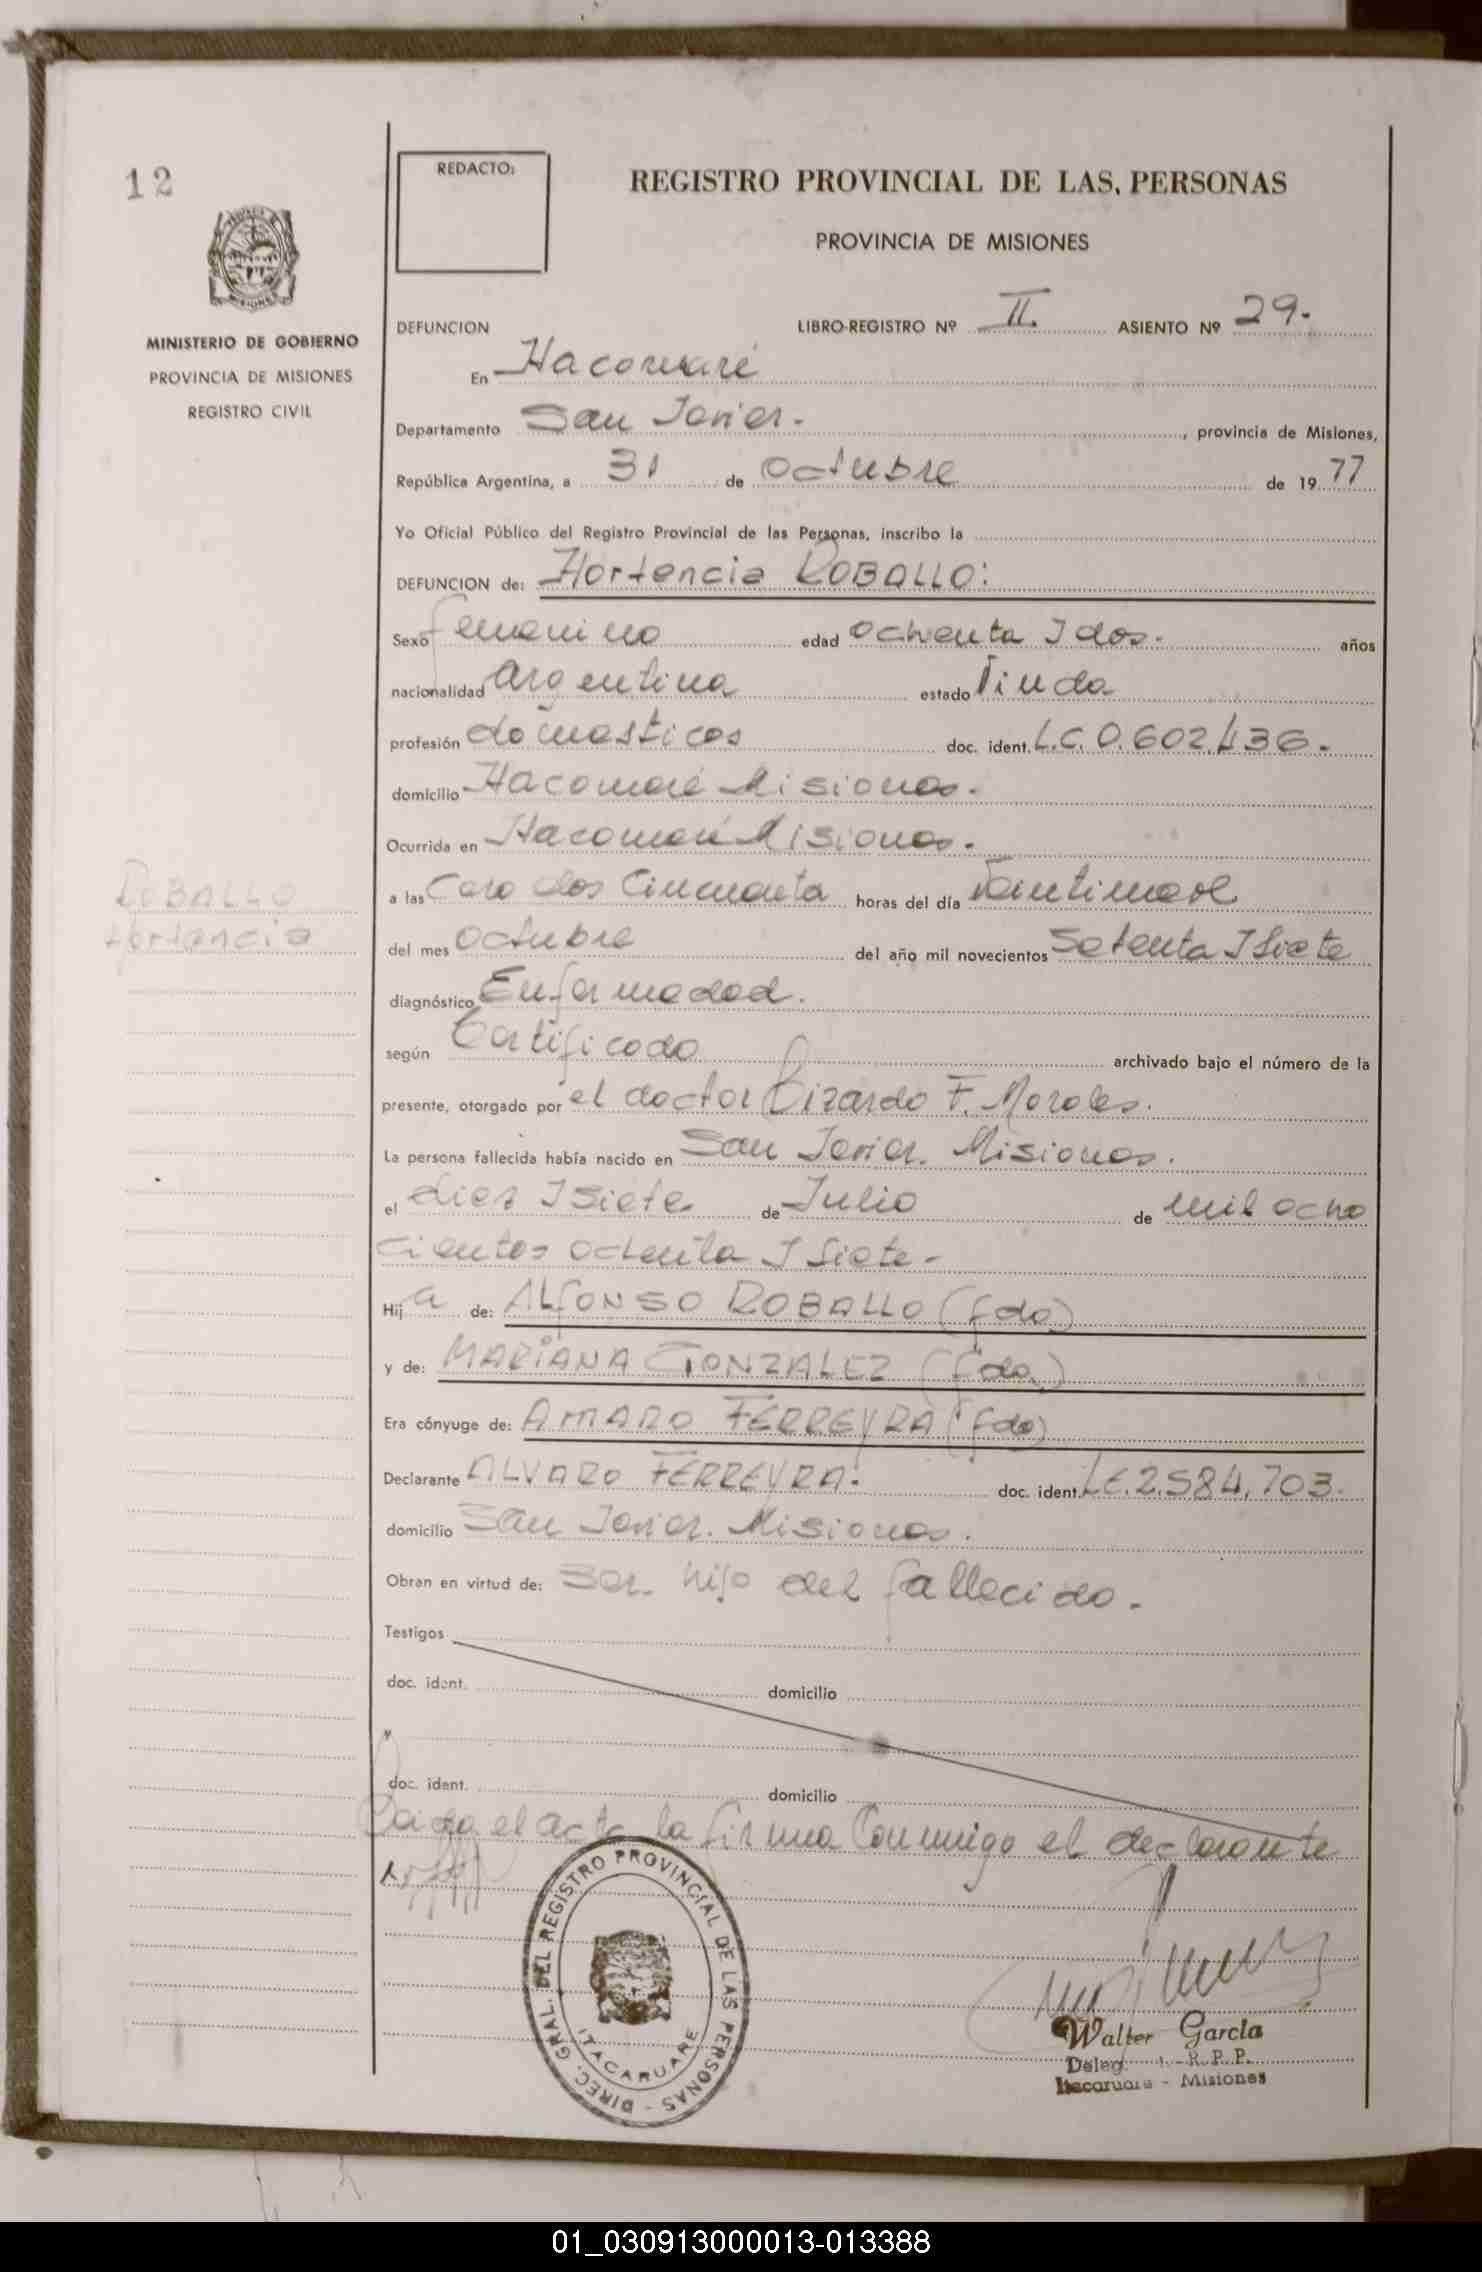 12
REDACTO:
REGISTRO PROVINCIAL DE LAS, PERSONAS
PROVINCIA DE MISIONES
MISIONES
MINISTERIO DE GOBIERNO
PROVINCIA DE MISIONES
REGISTRO CIVIL
DEFUNCION LIBRO-REGISTRO Nº II. ASIENTO Nº 29.
En Itacaruaré
Departamento San Javier. , provincia de Misiones,
República Argentina, a 31 de octubre de 19 77
Yo Oficial Público del Registro Provincial de las Personas, inscribo la
DEFUNCION de: Hortencia ROBALLO:
Sexo femenino edad ochenta I dos. años
nacionalidad argentina estado Viuda
profesión domesticos doc. ident. L.C. 0.602.436.
domicilio Itacaruaré Misiones.
Ocurrida en Itacaruaré Misiones.
ROBALLO
Hortencia
a las Cero dos Cincuenta horas del día
del mes octubre del año mil novecientos Setenta I Siete
diagnóstico Enfermedad.
según Certificado archivado bajo el número de la
presente, otorgado por el doctor Lizardo F. Morales.
La persona fallecida había nacido en San Javier. Misiones.
el diez I Siete de Julio de mil ocho
cientos ochenta I Siete-
Hij a de: ALfONSO ROBALLO (fdo)
y de: MARiANA GONZALEZ (fda)
Era cónyuge de: AMARO FERREYRA (fdo)
Declarante ALVARO FERREYRA: doc. ident. L.E. 2.584.703.
domicilio San Javier. Misiones.
Obran en virtud de: Ser hijo del fallecido.
Testigos
doc. ident. domicilio
y
doc. ident. domicilio
el acta la firma Conmigo el declarante
DIREC. GRAL. DEL REGISTRO PROVINCIAL DE LAS PERSONAS -
ITACARUARE
Walter García
Deleg. R. P. P.
Itacaruaré - Misiones
01_030913000013-013388